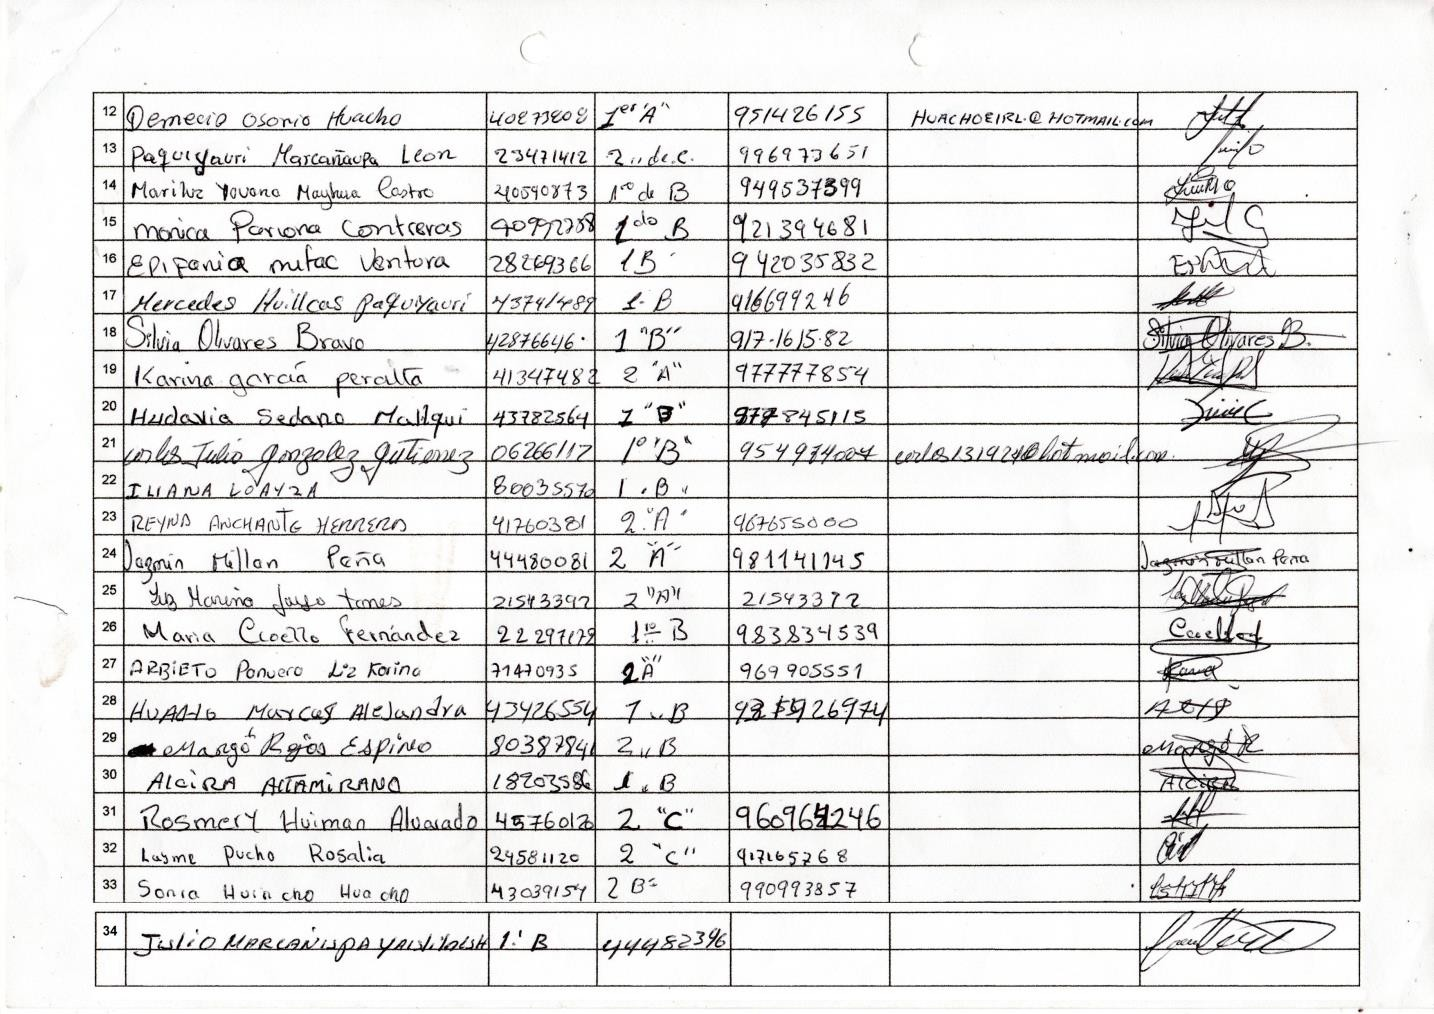 12 Demecio Osorio Huacho 40873808 1er "A" 951426155 HUACHOEIRL@HOTMAIL.com
13 Paquiyauri Marcañaupa Leon 23471412 2 ,, de.c. 996973651
14 Mariluz Yovana Mayhua Castro 40590873 1ro de B 949537399
15 monica Pariona Contreras 40992738 1do B 921394681
16 EPifania mitac Ventura 28269366 1B 942035832
17 Mercedes Huillcas paquiyauri 43741489 1. B 916699246
18 Silvia Olivares Bravo 42876646. 1 "B" 917-1615.82 Silvia Olivares B.
19 Karina garcía peralta 41347482 2 "A" 977777854
20 Hudavia Sedano Mallqui 43782564 1 "B" 977845115
21 carlos Julio gonzalez gutierrez 06266117 1º "B" 954974007 carlos131924@hotmail.com.
22 ILIANA LOAYZA 80035570 1 . B .
23 REYND ANCHANTE HERRERA 41760381 2. "A" 967655000
24 Jazmin Millan Peña 44480081 2 "A" 981141145 Jazmin Millan Peña
25 Luz Marina 21543392 2 "A" 21543372
26 Maria Ccoello Fernández 22297179 1ro B 983834539 Ccoello
27 ARBIETO Ponuero Liz Karina 71470935 2"A" 969905551 Karina
28 Marcas Alejandra 43426554 1 .. B
29 Margó Rojas Espino 80387841 2 ,, B Margó R
30 Alcira ALTAMIRANO 18203586 1. . B Alcira
31 Rosmery Huiman Alvarado 45760120 2 "C" 960964246
32 Layme Pucho Rosalia 24581120 2 "C" 917165768
33 Sonia Huincho Huacho 43039154 2 B" 990993857
34 Julio MARCAÑUPA 1.' B 44482396